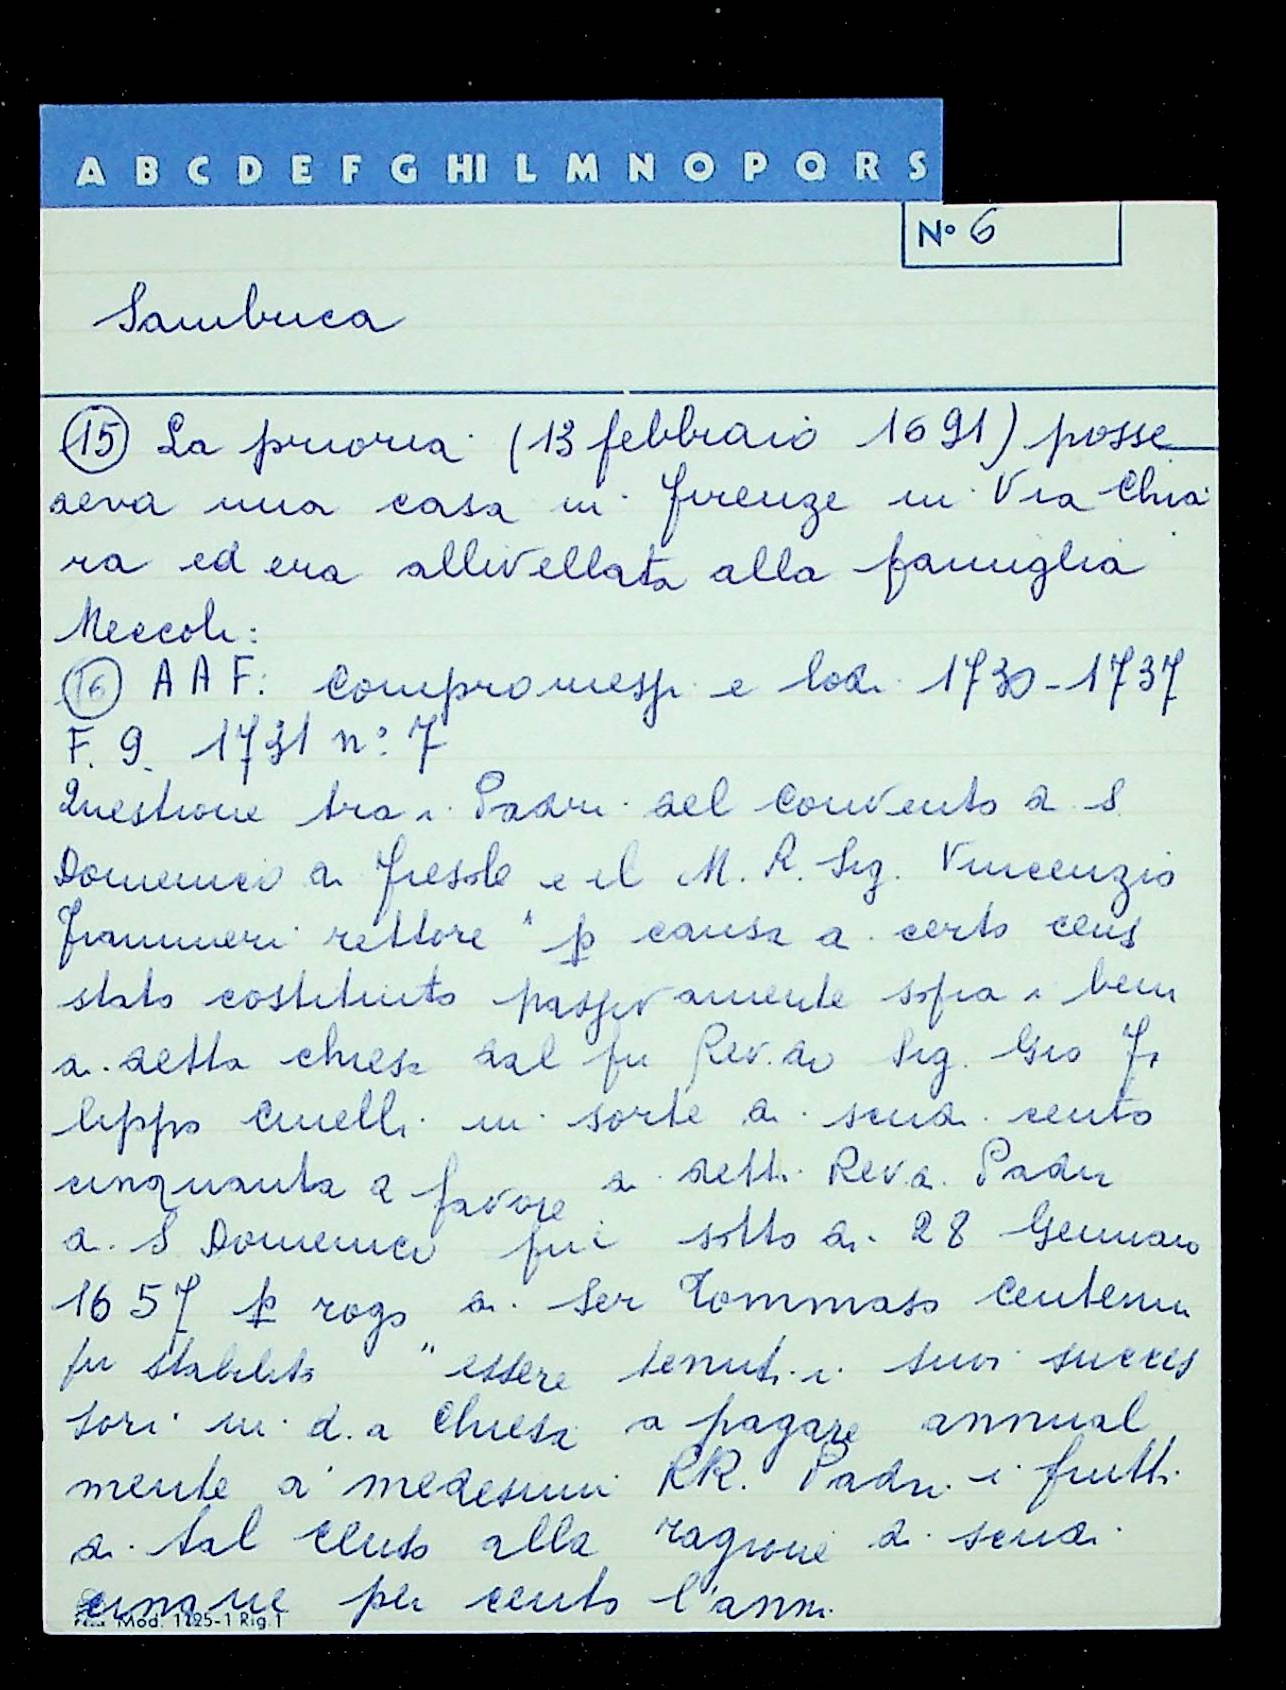 A B C D E F G HI L M N O P Q R S
N° 6
Sambuca
15 La prioria (13 febbraio 1691) posse
deva una casa in Firenze in Via Chia
ra ed era allivellata alla famiglia
Meccoli:
16 A A F: Compromessi e lodi 1730-1737
F. 9. 1731 n° 7
Questione tra i Padri del Convento di S
Domenico di Fiesole e il M. R. Sig. Vincenzio
rettore "p causa di certo cens
stato costituito passivamente sopra i beni
di detta chiesa dal fu Rev.do Sig. Gio Fi
lippo Cinelli in sorte di scudi cento
cinquanta a favore di detti Rev.di Padri
di S Domenico fin sotto di 28 Gennaio
1657 p rogo di Ser Tommaso Centenni
fu stabilito "essere tenuti i suoi succes
sori in d.a Chiesa a pagare annual
mente a' medesimi RR. Padri i frutti
di tal censo alla ragione di scudi
cinque per cento l'anno
Mod. 1125-1 Rig. 1